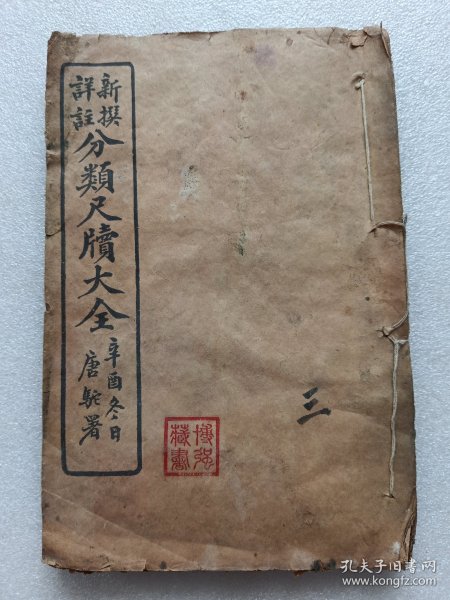 新撰
詳註
分類尺牘大全
辛酉冬日
唐駝署
三
博強
藏書
孔夫子旧书网
www.kongfz.com